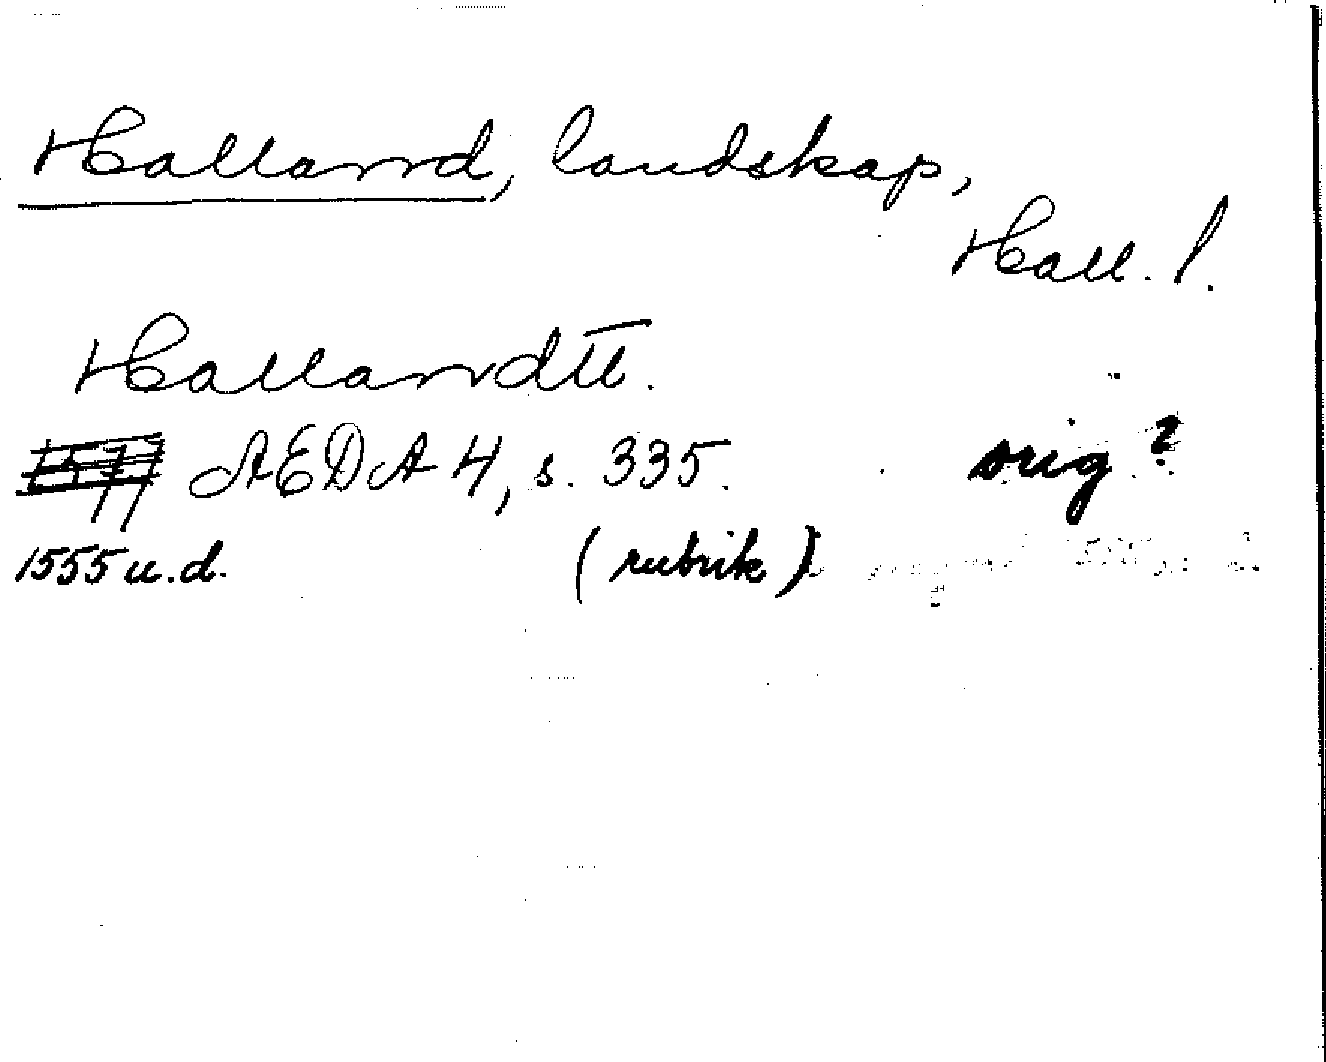 Halland, landskap,
Hall. l.
Hallandtt̅.
AEDA 4, s. 335. orig?
1555 u.d. (rubrik)